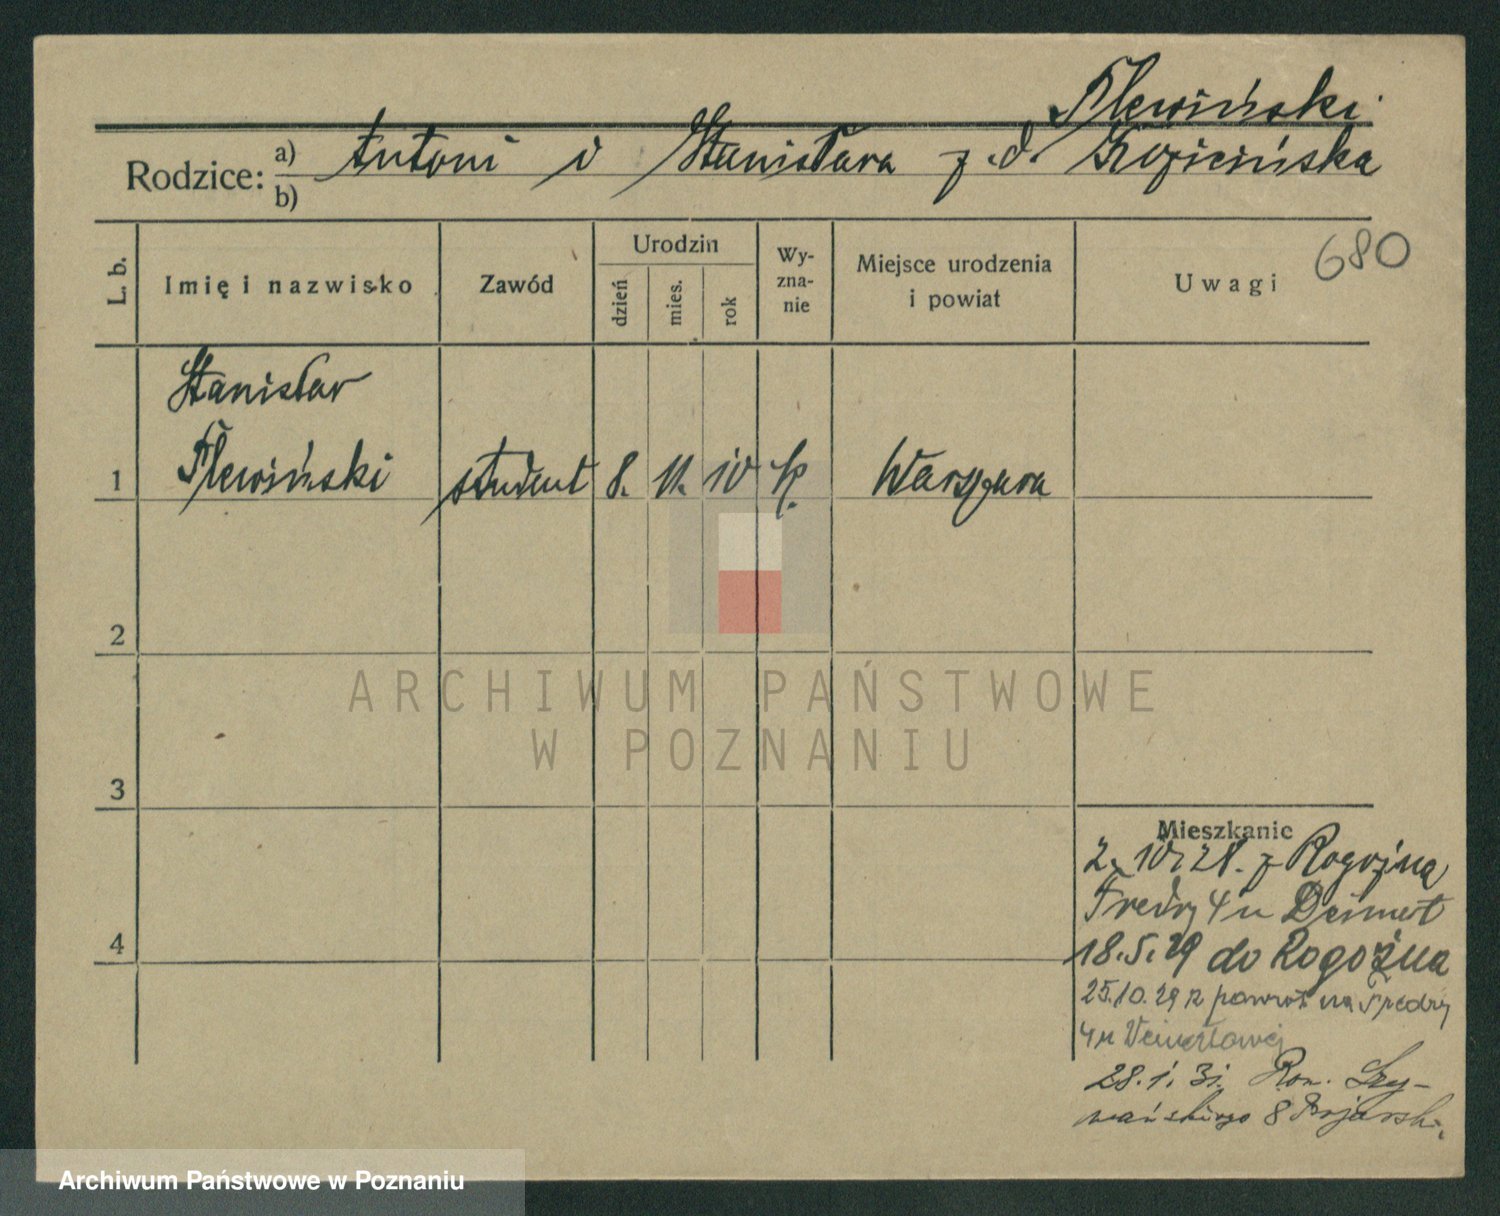 Plewiński
Rodzice: a) Antoni i Stanisława z.d.
b)
680
L. b. Imię i nazwisko Zawód Urodzin dzień mies. rok Wyznanie Miejsce urodzenia i powiat Uwagi
Stanisław
1 Plewiński student 8. 11. 10 Warszawa
2
3
4
Mieszkanie
2.10.28. z Rogoźna
Fredry 4 u
18.5.29 do Rogoźna
25.10.29 r powrot na Fredry
4 u
28.1.31. Rom. Szy-
mańskiego 8
ARCHIWUM PAŃSTWOWE
W POZNANIU
Archiwum Państwowe w Poznaniu